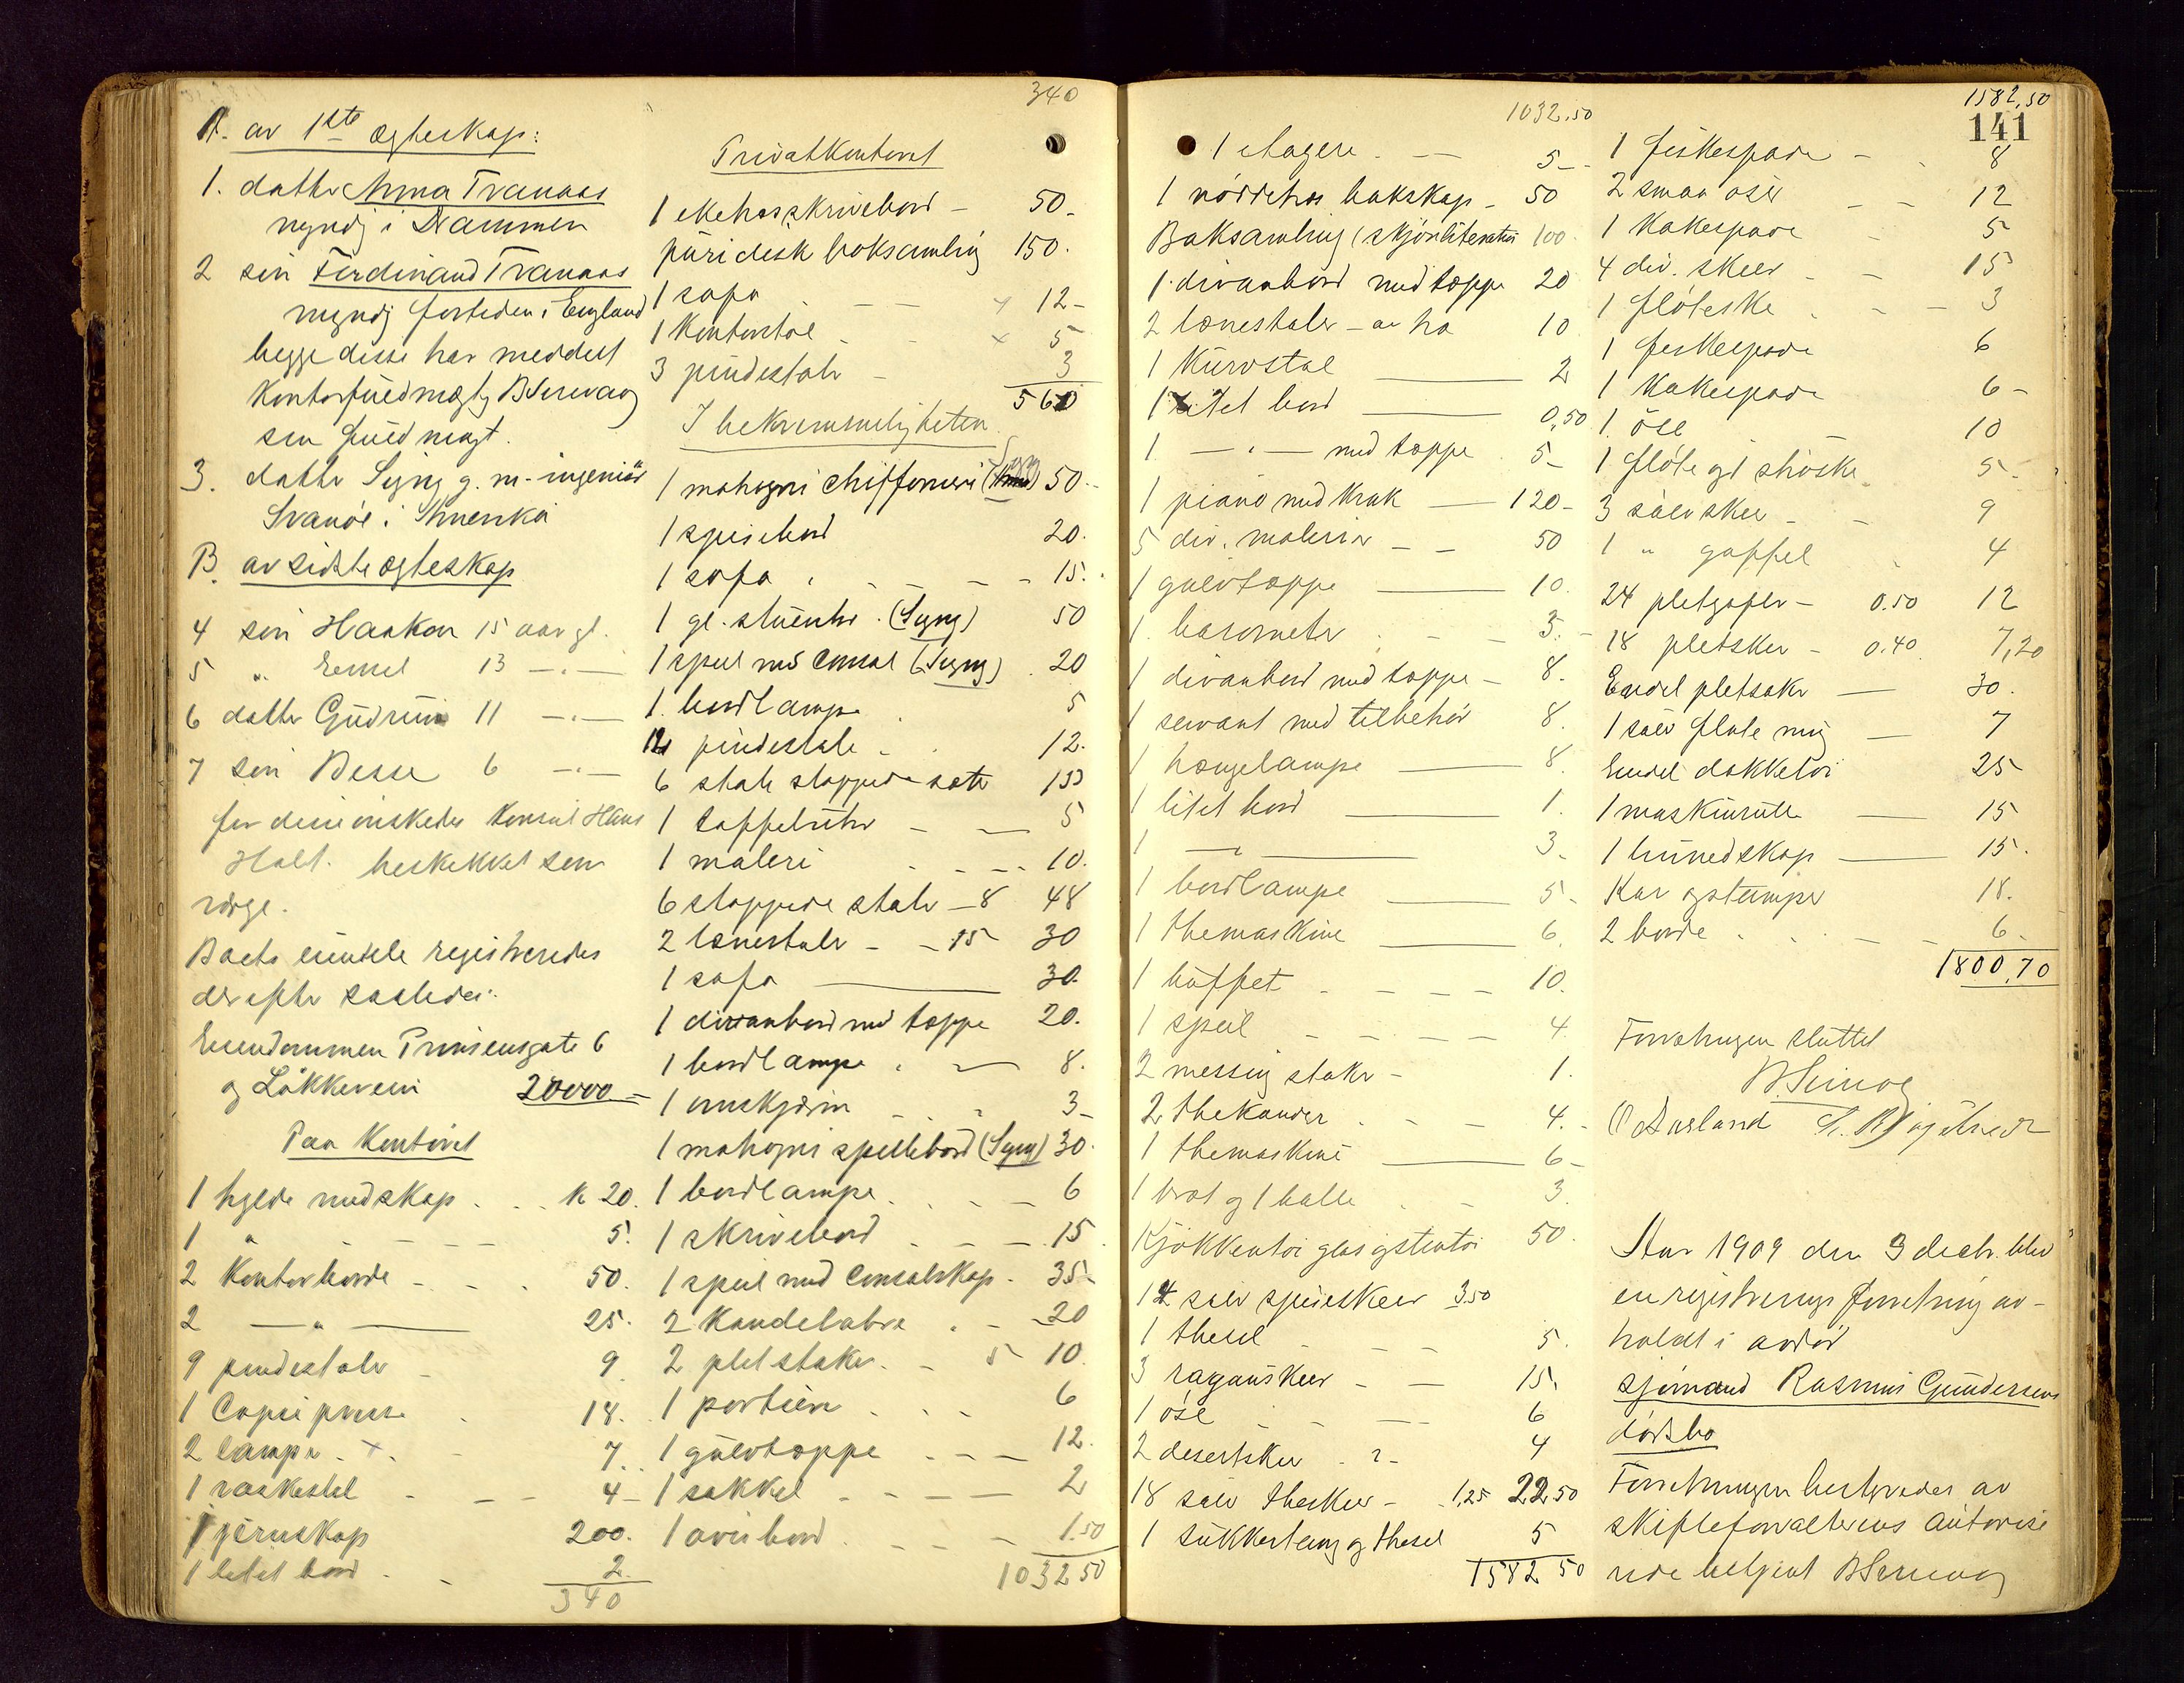 A. av 1ste egteskap:
1. datter Anna Tranaas
myndig i Drammen
2 søn Ferdinand Tranaas
myndig fortiden i England
begge disse har meddelt
Kontorfuldmægtig B Serevaag
sin fuldmagt.
3. datter Signy g. m. ingeniør
Svanøe i Amerika
B. av sidste egteskap
4 søn Haakon 15 aar gl.
5 " 13 — " —
6 datter Gudrun 11 — " —
7 søn Besse 6 — " —
for disse ønskedes Konsul Hans
Holt beskikket som
værge.
Boets eiendele registreredes
derefter saaledes:
Eiendommen Prinsensgate 6
og Løkkeveien 20000 —
Paa Kontoret
1 hylde med skap . . . k 20.
1 " - - - - 5.
2 Kontorborde - - . 50.
2 — " — 25.
9 pindestoler - 9
1 Copie presse . 18.
2 lampe . + . - 7.
1 vaskestel - - - 4 -
1 jernskap 200.
1 litet bord . - 2.
340
340
Privatkontoret
1 eketræs skrivebord - 50 -
juridisk boksamling 150.
1 sofa . - - 12 -
1 Kontorstol - - 5
3 pindestoler - 3
560
I bekvemmeligheten
1 mahogni chiffoniere (Signy) 50 -
1 spisebord 20.
1 sofa . - - - - 15.
1 gl. stueuhr . (Signy) 50
1 speil med Consol (Signy) . 20
1. bordlampe . 5
12 pindestole - . 12.
6 stole stoppede sæter
1 taffeluhr - — 5
1 maleri . - - - 10.
6 stoppede stoler - 8 48
2 lænestoler - - 15 30
1 sofa — 30.
1 divanbord med teppe 20.
1 bordlampe . — 8.
1 ovnskjærm - . - 3 -
1 mahogni spillebord (Signy) 30.
1 bordlampe . . . - - 6
1 skrivebord . - - - 15
1 speil med Consolskap . 35 -
2 Kandelabre . - - 20
2 pletstaker . - 5 10.
1 portiere . . - 6
1 gulvteppe . - - 12.
1 sokkel - - - - — 2
1 avisbord . - - - 1.50
1032 50
1032.50
1 etagere . — 5 -
1 nøddetræs bokskap - 50
Boksamling (skjønliteratur 100.
1 divanbord med teppe 20
2 lænestoler - av træ 10
1 Kurvstol — 2
1 litet bord — 0,50
1 — " — med teppe . 5 -
1 piano med krak — 120 -
5 div. malerier - - 50
1 gulvteppe — 10.
1. barometer . - - 3. -
1 divanbord med teppe - 8.
1 servant med tilbehør 8.
1 hængelampe — 8.
1 litet bord — 1.
1 — " — 3 -
1 bordlampe — 5 -
1 themaskine — 6.
1 buffet - - - - 10.
1 speil - - - - 4.
2 messing staker - 1.
2 thekander . - - 4. -
1 themaskine — 6 -
1 bræt og 1 balle . - 3.
Kjøkkentøi glas og stentøi 50.
12 sølv spiseskeer 3.50
1 thesil - - - 5.
3 ragouskeer - — 15.
1 øse - - — 6
2 desertskeer . 2 - 4
18 sølv theskeer - 1,25 22 50
1 sukkertang og thesil 5
1582 50
1582,50
141
1 fiskespade - . 8
2 smaa øser - - 12
1 Kakespade - 5
4 div. skeer - - 15
1 fløteske . - - 3
1 fiskespade 6
1 Kakespade 6 -
1. øse 10
1 fløte og 1 strøske 5 -
3 sølvskeer - - 9
1 " gaffel . 4
24 pletgafler - 0.50 12
18 pletskeer - 0.40 7,20
Endel pletsaker — 30.
1 sølv fløtemug — 7
Endel dækketøi 25
1 maskinrulle — 15
1 linnedskap — 15.
Kar og stamper 18.
2 borde . . . - - 6 -
1800,70
Forretningen sluttet
B. Serevaag
O Aarsland
Aar 1909 den 3 decbr. blev
en registreringsforretning av-
holdt i avdøde
sjømand Rasmus Gundersens
dødsbo
Forretningen bestyredes av
skifteforvalterens autorise
rede betjent B Serevaag